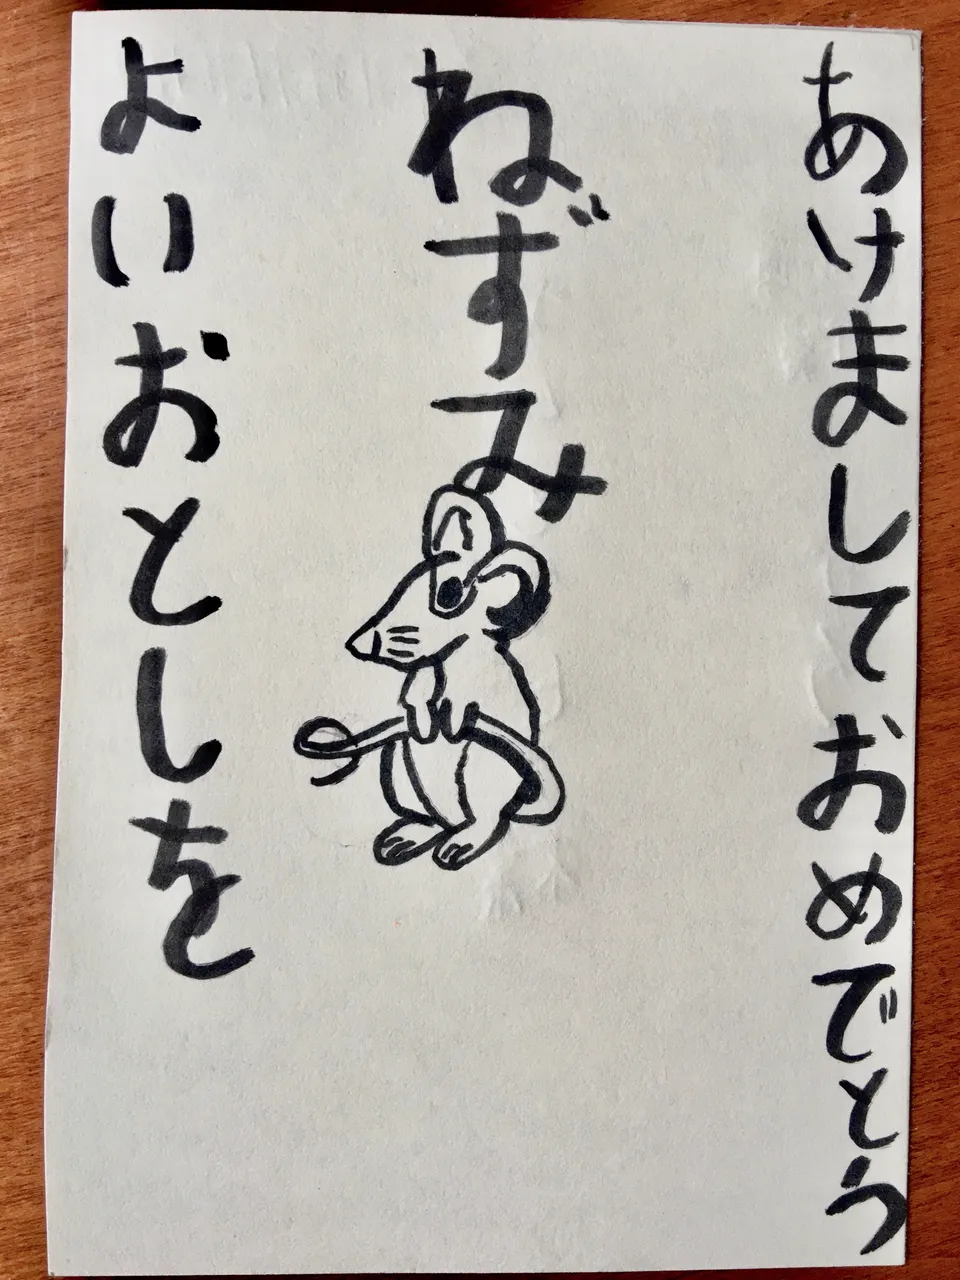 あけましておめでとう
ねずみ
よいおとしを